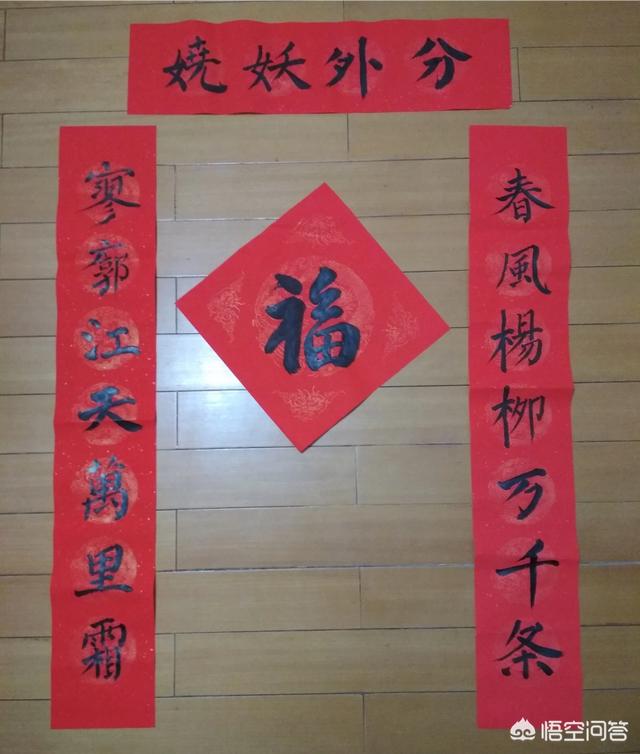 分外妖嬈
春風楊柳万千条
寥廓江天萬里霜
福
悟空问答